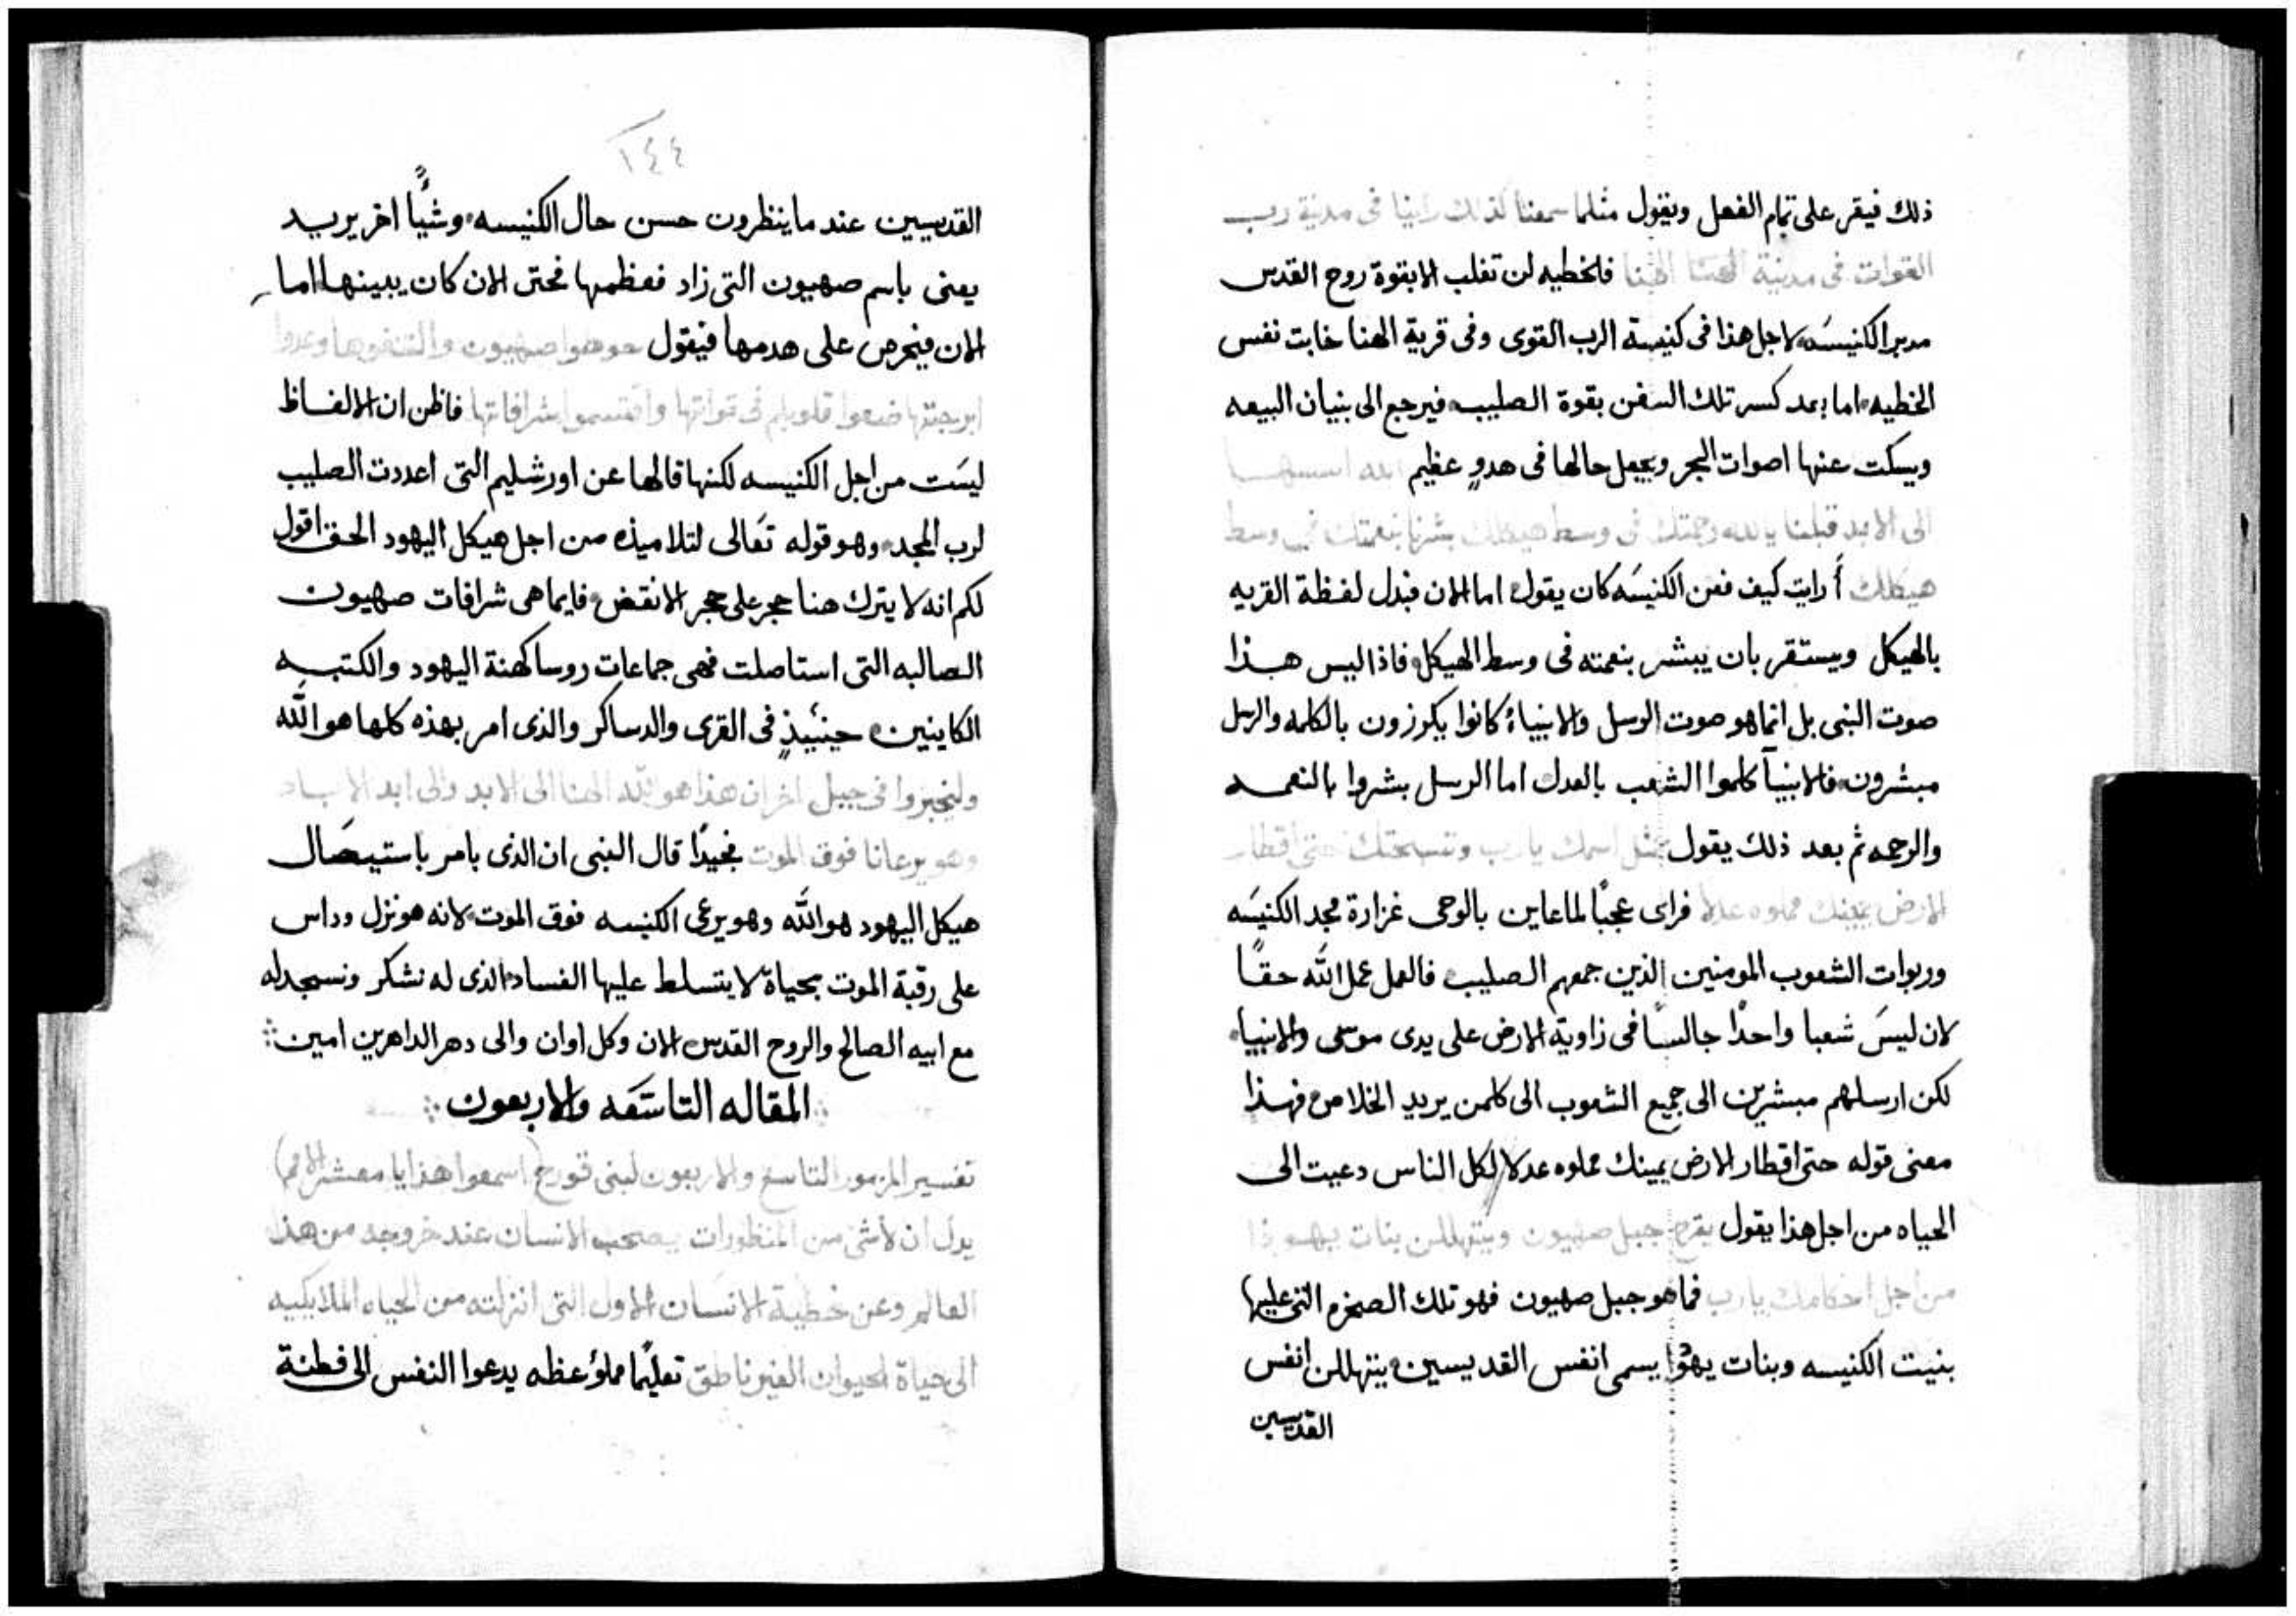 ذلك فيقر على تمام الفعل ويقول مثلما سمعنا كذلك راينا فى مدينة رب
القوات فى مدينة الهنا الهنا فالخطيه لن تغلب الابقوة روح القدس
مدبر الكنيسه لاجل هذا فى كنيسة الرب القوى وفى قرية الهنا خابت نفس
الخطيه اما بعد كسر تلك السفن بقوة الصليب فيرجع الى بنيان البيعه
ويسكت عنها اصوات البحر ويجعل حالها فى هدوٍ عظيم الله اسسها
الى الابد قبلنا يا الله رحمتك فى وسط هيكلك بشرنا بنعمتك فى وسط
هيكلك أرايت كيف فعن الكنيسَه كان يقول اما الان فبدل لفظة القريه
بالهيكل ويستقر بان يبشر بنعمته فى وسط الهيكل فاذا ليس هذا
صوت النبى بل انما هو صوت الرسل والانبياء كانوا يكرزون بالكلمه والرسل
مبشرون فالانبيآ كلموا الشعب بالعدل اما الرسل بشروا بالنعمه
والرحمه ثم بعد ذلك يقول مثل اسمك يا رب وتسبحتك حتى اقطار
الارض يمينك مملوه عدلا فراى عجبًا لما عاين بالوحى غزارة مجد الكنيسَه
وربوات الشعوب المومنين الذين جمعهم الصليب فالعمل عمل الله حقًا
لان ليسَ شعبا واحدًا جالسًا فى زاوية الارض على يدى موسى والانبياء
لكن ارسلهم مبشرين الى جميع الشعوب الى كلمن يريد الخلاص فهذا
معنى قوله حتى اقطار الارض يمينك مملوه عدلا لكل الناس دعيت الى
الحياه من اجل هذا يقول يفرح جبل صهيون ويتهللن بنات يهوذا
من اجل احكامك يا رب فما هو جبل صهيون فهو تلك الصخره التى عليها
بنيت الكنيسه وبنات يهوذا يسمى انفس القديسين يتهللن انفس
القديسين
١٤٤
القديسين عند ما ينظرون حسن حال الكنيسه وشيأً اخر يريد
يعنى باسم صهيون التى زاد فعظمها فحتى الان كان يبينها اما
الان فيحرص على هدمها فيقول حوطوا صهيون والتنفوها وعدوا
ابرجتها ضعوا قلوبكم فى قواتها واقتسموا شرافاتها فاظن ان الالفاظ
ليسَت من اجل الكنيسه لكنها قالها عن اورشليم التى اعددت الصليب
لرب المجد وهو قوله تعَالى لتلاميذه من اجل هيكل اليهود الحق اقول
لكم انه لا يترك هنا حجر على حجر الانقض فايما هى شرافات صهيون
الصالبه التى استاصلت فهى جماعات روسا كهنة اليهود والكتبه
الكاينين حينيذٍ فى القرى والدساكر والذى امر بهذه كلها هو الله
وليخبروا فى جيل اخر ان هذا هو الله الهنا الى الابد والى ابد الاباد
وهو يرعانا فوق الموت فجيدًا قال النبى ان الذى يامر باستيصَال
هيكل اليهود هو الله وهو يرعى الكنيسه فوق الموت لانه هو نزل وداس
على رقبة الموت بحياة لا يتسلط عليها الفساد الذى له نشكر ونسجد له
مع ابيه الصالح والروح القدس الان وكل اوان والى دهر الداهرين امين
المقاله التاسَعه والاربعون
تفسير المزمور التاسع والاربعون لبنى قورح (اسمعوا هذا يا معشر الامم)
يدل ان لاشى من المنظورات يصحب الانسان عند خروجه من هذا
العالم وعن خطية الانسان الاول التى انزلته من الحياه الملايكيه
الى حياة الحيوان الغير ناطق تعليمًا مملؤ عظه يدعوا النفس الى فطنة